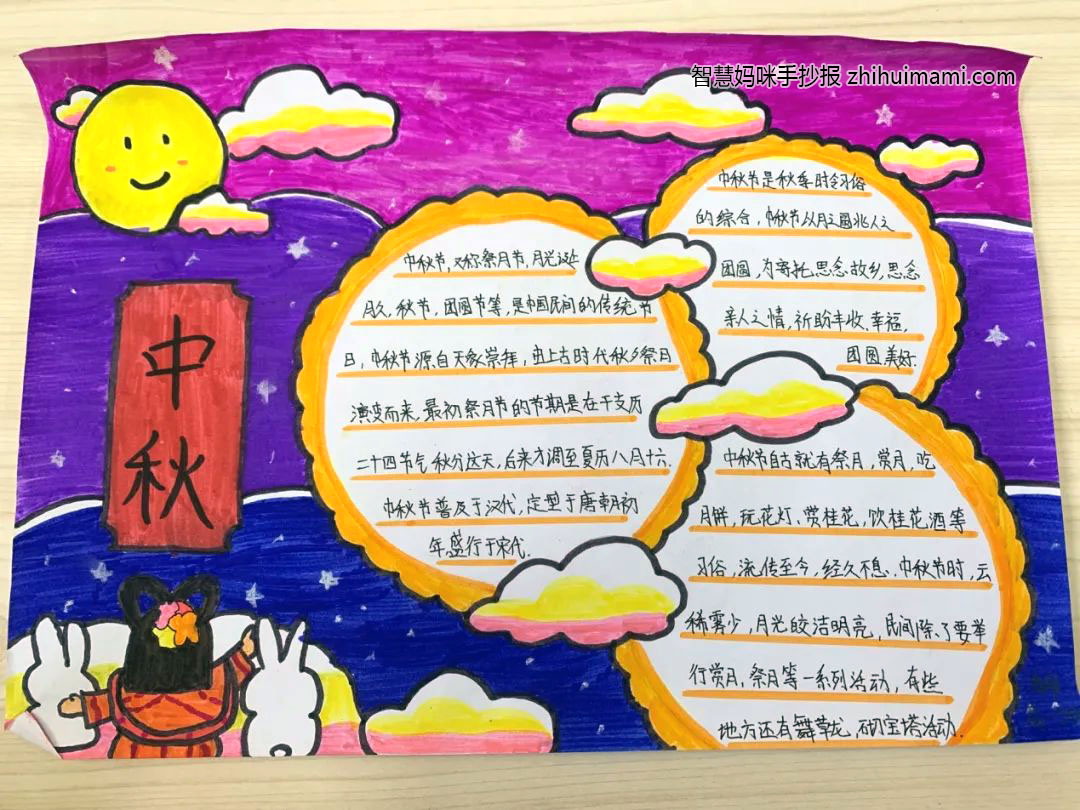 智慧妈咪手抄报 zhihuimami.com
中秋
中秋节,又称祭月节,月光诞
月夕,秋节,团圆节等,是中国民间的传统节
日,中秋节源自天象崇拜,由上古时代秋夕祭月
演变而来.最初祭月节的节期是在干支历
二十四节气秋分这天,后来才调至夏历八月十六.
中秋节普及于汉代,定型于唐朝初
年,盛行于宋代.
中秋节是秋季时令习俗
的综合,中秋节以月之圆兆人之
团圆,为寄托思念故乡,思念
亲人之情,祈助丰收、幸福,
团圆美好.
中秋节自古就有祭月,赏月,吃
月饼,玩花灯、赏桂花,饮桂花酒等
习俗,流传至今,经久不息.中秋节时,云
稀雾少,月光皎洁明亮,民间除了要举
行赏月,祭月等一系列活动,有些
地方还有舞草龙,砌宝塔活动.